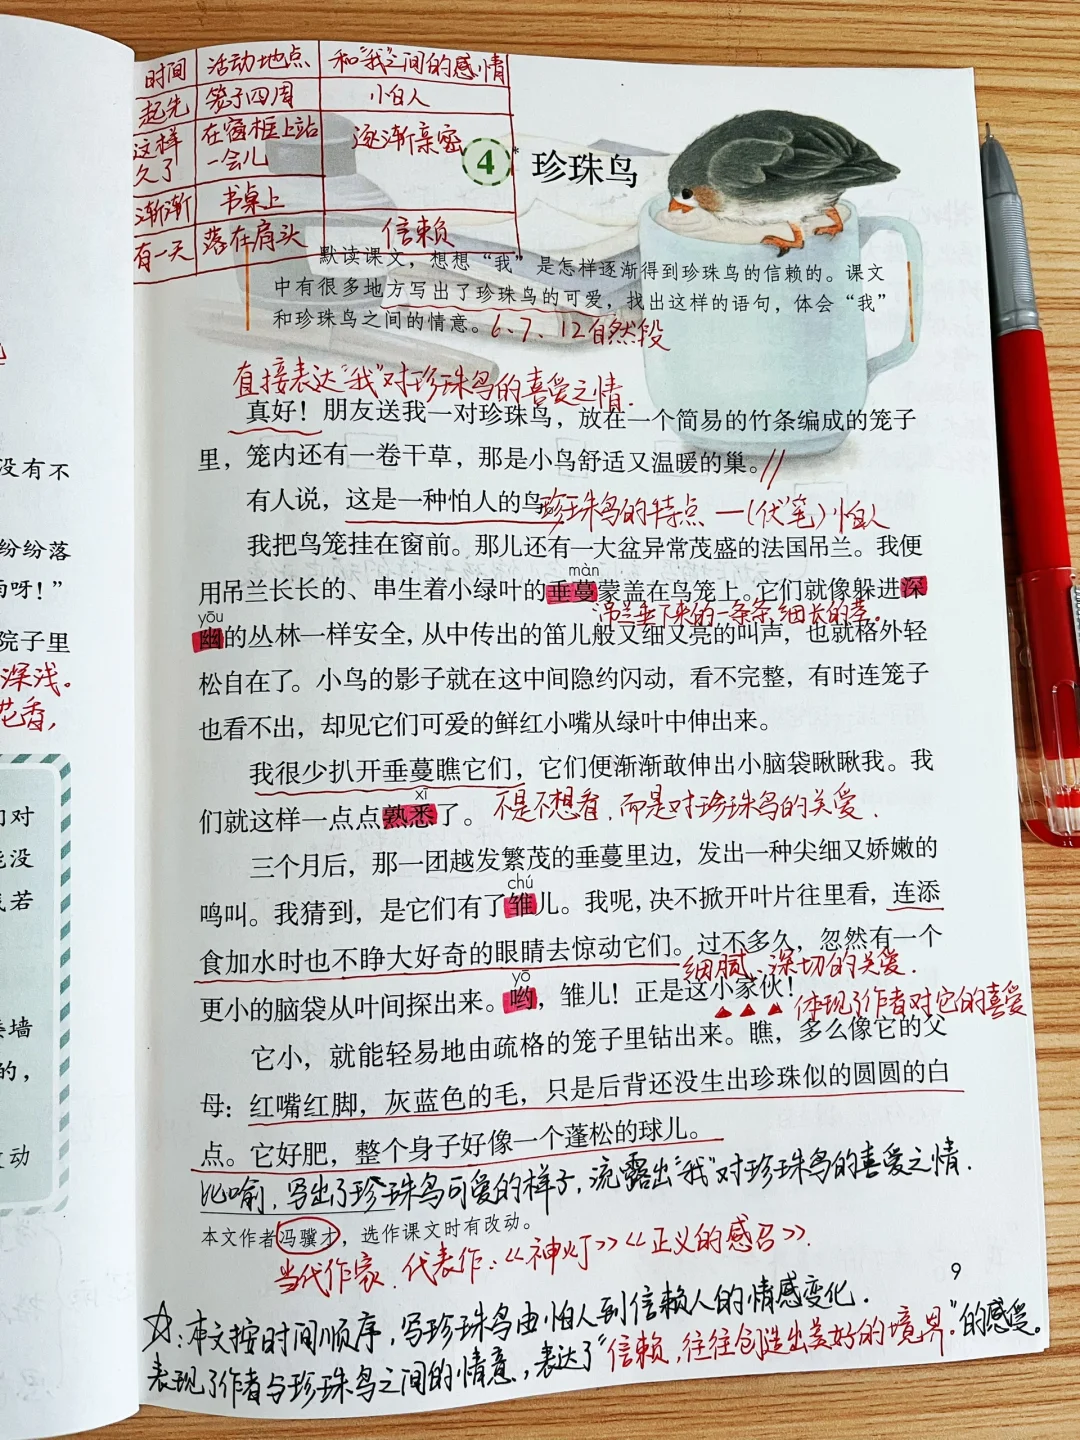 时间 活动地点 和"我"之间的感情
起先 笼子四周 小白人
这样久了 在窗框上站一会儿 逐渐亲密
渐渐 书桌上
有一天 落在肩头 信赖
4* 珍珠鸟
默读课文，想想“我”是怎样逐渐得到珍珠鸟的信赖的。课文
中有很多地方写出了珍珠鸟的可爱，找出这样的语句，体会“我”
和珍珠鸟之间的情意。6、7、12自然段
直接表达"我"对珍珠鸟的喜爱之情.
真好！朋友送我一对珍珠鸟，放在一个简易的竹条编成的笼子
里，笼内还有一卷干草，那是小鸟舒适又温暖的巢。//
有人说，这是一种怕人的鸟。珍珠鸟的特点 —(伏笔)怕人
我把鸟笼挂在窗前。那儿还有一大盆异常茂盛的法国吊兰。我便
màn
用吊兰长长的、串生着小绿叶的垂蔓蒙盖在鸟笼上。它们就像躲进深
吊兰垂下来的一条条细长的茎。
yōu
幽的丛林一样安全，从中传出的笛儿般又细又亮的叫声，也就格外轻
松自在了。小鸟的影子就在这中间隐约闪动，看不完整，有时连笼子
也看不出，却见它们可爱的鲜红小嘴从绿叶中伸出来。
我很少扒开垂蔓瞧它们，它们便渐渐敢伸出小脑袋瞅瞅我。我
xī
们就这样一点点熟悉了。 不是不想看，而是对珍珠鸟的关爱.
三个月后，那一团越发繁茂的垂蔓里边，发出一种尖细又娇嫩的
chú
鸣叫。我猜到，是它们有了雏儿。我呢，决不掀开叶片往里看，连添
食加水时也不睁大好奇的眼睛去惊动它们。过不多久，忽然有一个
细腻、深切的关爱.
yō
更小的脑袋从叶间探出来。哟，雏儿！正是这小家伙！
体现了作者对它的喜爱
它小，就能轻易地由疏格的笼子里钻出来。瞧，多么像它的父
母：红嘴红脚，灰蓝色的毛，只是后背还没生出珍珠似的圆圆的白
点。它好肥，整个身子好像一个蓬松的球儿。
比喻，写出了珍珠鸟可爱的样子，流露出"我"对珍珠鸟的喜爱之情.
本文作者冯骥才，选作课文时有改动。
当代作家. 代表作：《神灯》《正义的感召》.
9
☆：本文按时间顺序，写珍珠鸟由怕人到信赖人的情感变化.
表现了作者与珍珠鸟之间的情意，表达了"信赖，往往创造出美好的境界."的感受。
没有不
纷纷落
雨呀！”
院子里
深浅。
花香，
们对
能没
若
墙
的，
动